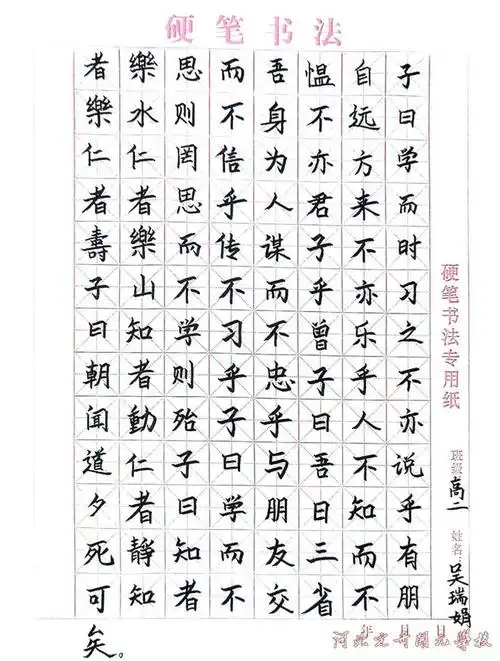 硬笔书法
子曰学而时习之不亦说乎有朋
自远方来不亦乐乎人不知而不
愠不亦君子乎曾子曰吾日三省
吾身为人谋而不忠乎与朋友交
而不信乎传不习乎子曰学而不
思则罔思而不学则殆子曰知者
樂水仁者樂山知者動仁者靜知
者樂仁者壽子曰朝聞道夕死可
矣。
硬笔书法专用纸
班级 高二 姓名 吴瑞娟
年 月 日